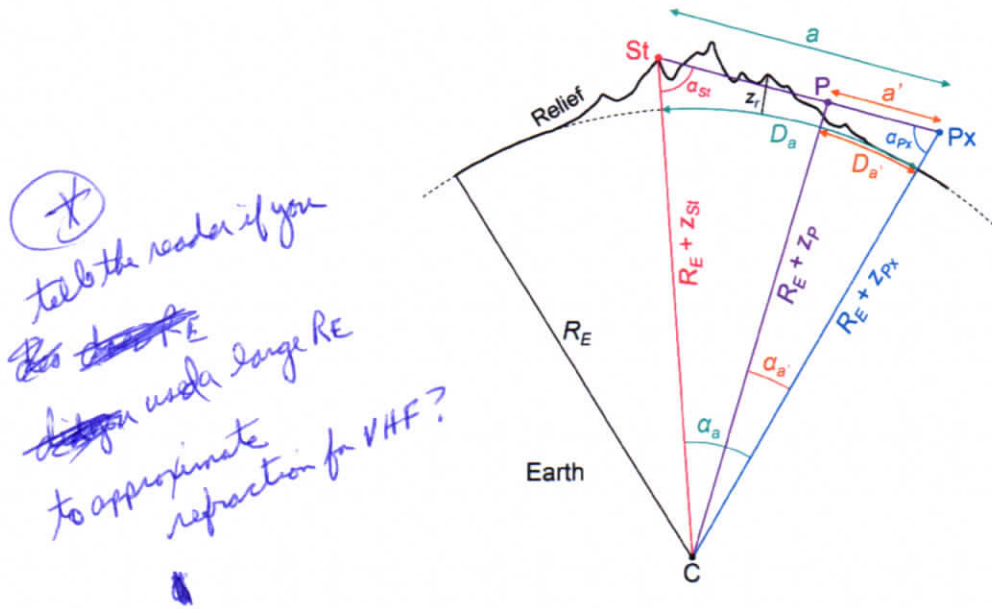 *
tell the reader if you
RE
used a large RE
to approximate
refraction for VHF?
a
St
P
a'
Relief
αSt
zr
Da
αPx
Px
Da'
RE + zSt
RE + zP
RE + zPx
RE
αa'
αa
Earth
C